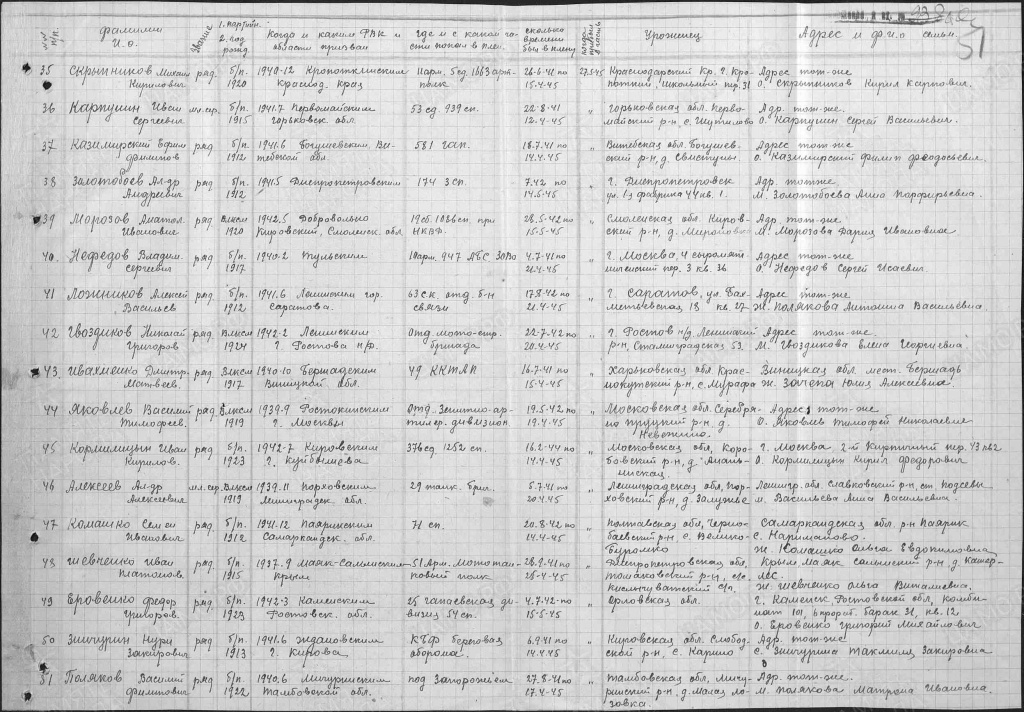 №№ п/п. фамилии И. о. Звание 1. партийн. 2. год рожд. Когда и каким РВК и области призван Где и с какой части попал в плен. сколько времени был в плену когда прибыл в часть Уроженец Адрес и ф.и.о семьи.
35 Скрыпников Михаил ряд. б/п. 1940-12 Кропоткинским 11 арм. 5 сд. 1663 арт- 26-6-41 по 27.5.45 Краснодарский Кр. г. Кро- Адрес тот-же
Кирилович 1920 Краснод. края полк 15-4-45 поткин, Школьный пер. 31 о. Скрыпников Кирил Карпович.
36 Карпушин Иван мл.сер. б/п. 1941.7 Первомайским 53 сд 939 сп. 22-8-41 " горьковск. обл. Перво- Адр. тот-же.
Сергеевич 1915 горьковск. обл. 12.4-45 майский р-н, с. Шутилово О. Карпушин Сергей Васильевич.
37 Казимирский Ефим ряд б/п. 1941.6 Богушевским, Ви- 581 гап. 18.7-41 по " Витебской обл. Богушев- Адрес тот же
филиппов 1912 тебской обл. 14.4-45 ский р-н, д. О. Казимирский филип феодосьевич.
38 Золотобоев Ал-др ряд б/п. 1941.5 Днепропетровским 174 зсп. 7.42 по " г. Днепропетровск Адр. тотже
Андреевич 1912 14.5-45 ул. 1я фабрика 44 кв. 1. М. Золотобоева Анна Порфирьевна.
39 Морозов Анатол. ряд Влксм 1942.5 Добровольно 19 сб. 1086 сп. при 28.5-42 по " Смоленская обл. Киров- Адр. тот-же
Иванович 1920 Кировский, Смоленск. обл. НКВД. 15-5-45 ский р-н, д. Мироново М. Морозова Дария Ивановна.
40. Нефедов Владим. ряд. б/п. 1940-2 Тульским 10 арм. 947 АБС 30 по 4.7-41 по " г. Москва, 4 сыромят Адрес тот-же
Сергеевич 1917 21.4-45 нический пер. 3 кв. 36 О. Нефедов Сергей Исаевич.
41 Ложников Алексей ряд б/п. 1941.6 Ленинским гор. 63 ск. отд. б-н 17.8-42 по " г. Саратов, ул. Бах- Адрес тот-же
Васильев 1912 Саратова. связи 21.4-45 метьевская 18 кв. 27. Ж. Полякова Антонина Васильевна
42 Гвоздиков Николай ряд Влксм 1942-2 Ленинским Отд. мото-стр. 22-7-42 по " г. Ростов н/д. Ленинский Адрес тот-же.
Григоров 1924 г. Ростова н/Д. бригада 20.4-45 р-н, Сталинградская 53. М. Гвоздикова Елена Георгиевна.
43. Ивахненко Дмитр. ряд. Влксм 1940-10 Бершадским 49 ККТАП 16.7-41 по " Харьковская обл. Крас- Винницкая обл. мест. Бершадь
Матвеев. 1917 Виницкой обл. 15-4-45 нокутский р-н, с. Мурафа Ж. Зачепа Юлия Алексеевна.
44 Яковлев Василий ряд Влксм 1939-9 Ростокинским Отд. Зенитно-ар- 19.5-42 по " Московская обл. Серебря- Адрес тот-же
Тимофеев. 1919 г. Москвы тилер. дивизион. 19.4-45 но прудский р-н д. О. Яковлев Тимофей Николаевич
45 Кормилицын Иван ряд б/п. 1942-7 Кировским 376 сд 1252 сп. 16.2-44 по " Московская обл, Коро- г. Москва 2-й Кирпичный пер. 43 кв 2
Кирилов. 1923 г. Куйбышева 14.4-45 бовский р-н, д. О. Кормилицын Кирил федорович
46 Алексеев Ал-др мл.сер. Влксм 1939.11 Порховским 29 танк. бриг. 5.7-41 по " Ленинградская обл, Пор- Ленингр. обл. Славковский р-н, ст Подсевы
Алексеевич 1919 Ленинградск. обл. 20.4-45 ховский р-н, д. Залужье м. Васильева Анна Васильевна.
47 Комашко Семен ряд б/п. 1941.12 Пайрикским 71 сп. 20.8-42 по " Полтавская обл, Черно- Самаркандская обл. р-н Паярик
Иванович 1912 Самаркандск. обл. 14.4-45 баевский р-н, с. Велико- с. Нариманово.
Ж. Комашко Ольга Евдокимовна
48 Шевченко Иван ряд. б/п. 1937-9 Маяк-Салынским 51 Арм. Мото тан- 28.9-41 по " Днепропетровская обл, Крым Маяк салынский р-н, д
Платонов. 1915 Крым ковый полк 28-4-45 томаковский р-н, с/с лос.
с/п. Ж. Шевченко Ольга Виталиевна.
49 Еровенко федор ряд б/п. 1942-3 Каменским 25 Чапаевская ди- 4.7-42-по " Орловская обл. г. Каменск Ростовской обл, комби-
Григоров. 1923 Ростовск. обл. визия 54 сп. 15-5-45 нат 101, барак 31, кв. 12
О. Еровенко Григорий Михайлович
50 Зингурин Нури ряд. б/п. 1941.6 Ждановским КЧФ береговая 6.9-41 по " Кировская обл. Слобод- Адр. тот-же
Закирович 1913 г. Кирова оборона. 14.4-45 ской р-н, с. Карино с. Зингурина Закировна
51 Поляков Василий ряд б/п. 1940.6 Мичуринским под Запорожьем 27.8-41 по " Тамбовская обл, Мичу- Адр. тот-же.
филипович 1922 Тамбовской обл. 17.4-45 ринский р-н, д. Малая Ло- М. Полякова Матрона Ивановна.
зовка.